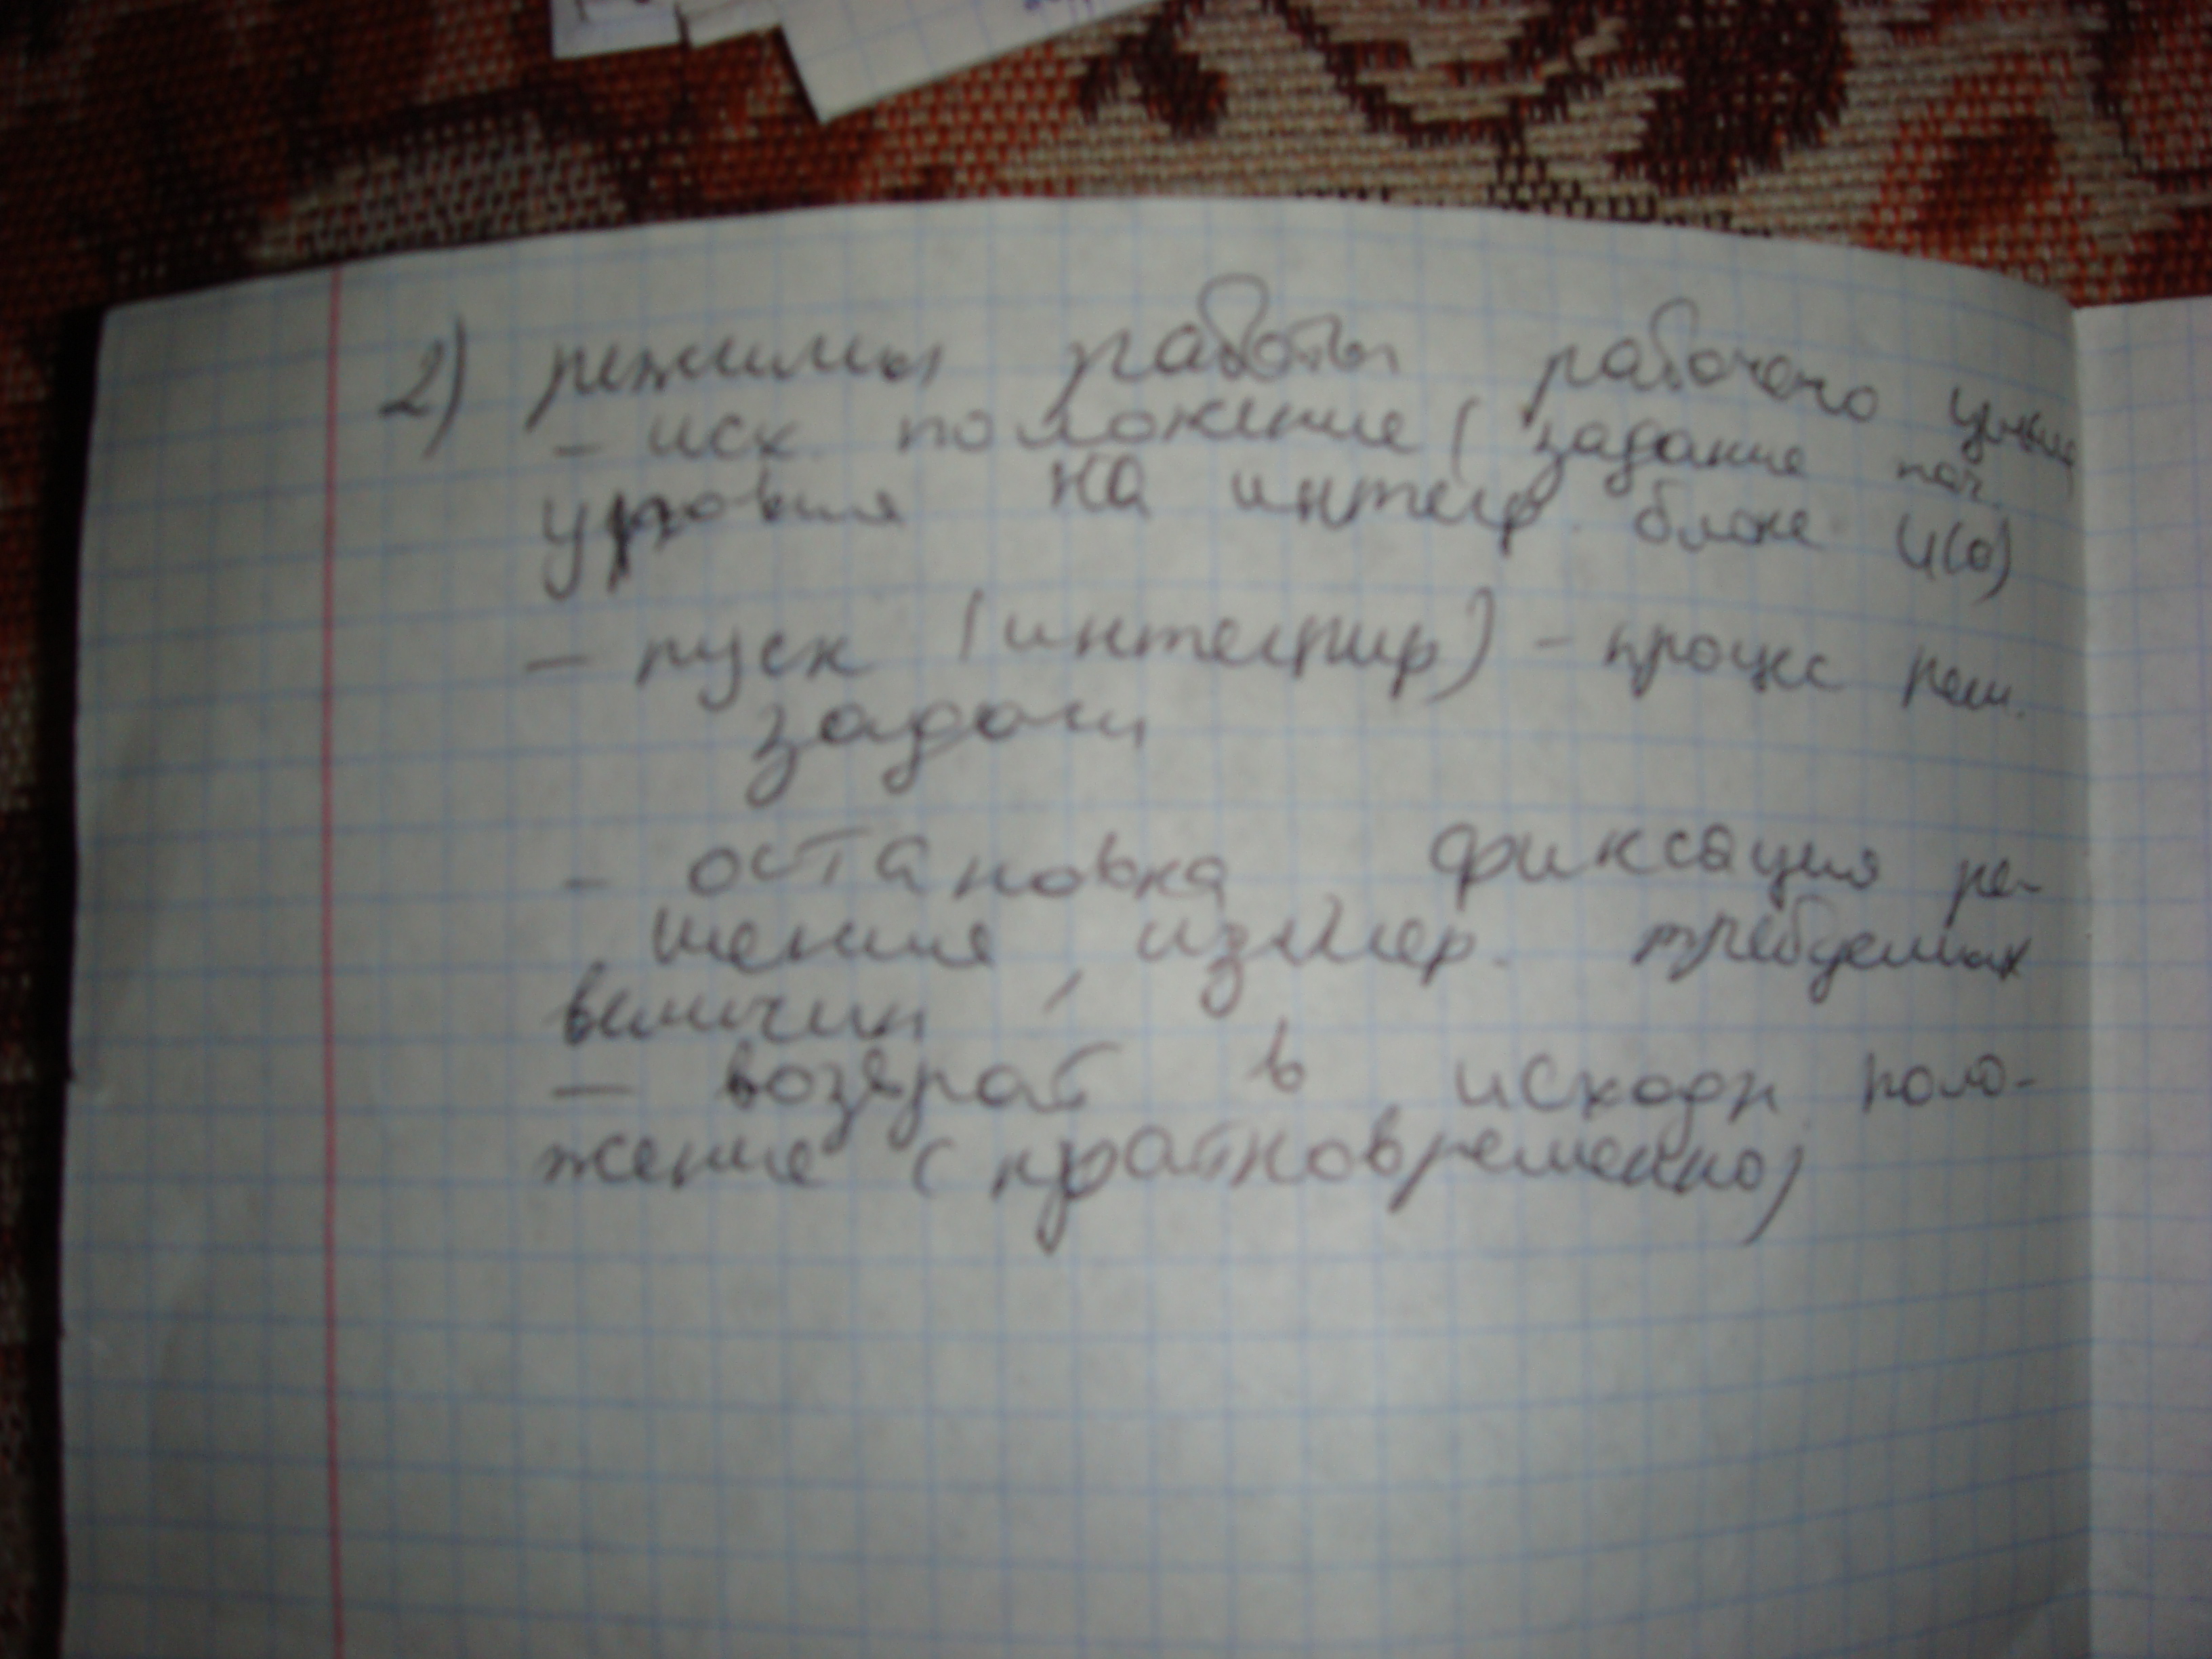 2) режимы работы рабочего цикла
- исх. положение (задание нач.
уровня на интегр. блоке U(0)
- пуск (интегрир) - процес реш.
задачи
- остановка фиксация ре-
шения, измер. требуемых
величин
- возврат в исходн. поло-
жение (кратковременно)